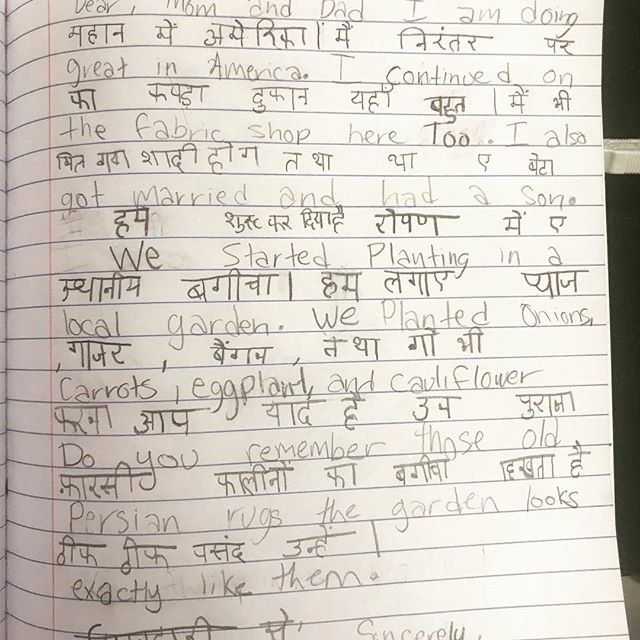 Dear, Mom and Dad I am doing
महान में अमेरिका। मैं निरंतर पर
great in America. I continued on
का कपड़ा दुकान यहाँ बहुत । मैं भी
the fabric shop here Too. I also
शादी होग तथा था ए बेटा
got married and had a son.
हम शुरू कर दिया है रोपण में ए
We Started Planting in a
स्थानीय बगीचा। हम लगाए प्याज
local garden. We Planted Onions,
गाजर , बैंगन , तथा गो भी
Carrots, eggplant, and cauliflower
करना आप याद है उप पुराना
Do you remember those old
फ़ारसी कालीनों का बगीचा दिखता है
Persian rugs the garden looks
ठीक ठीक पसंद उन्हें ।
exactly like them.
से, Sincerely,